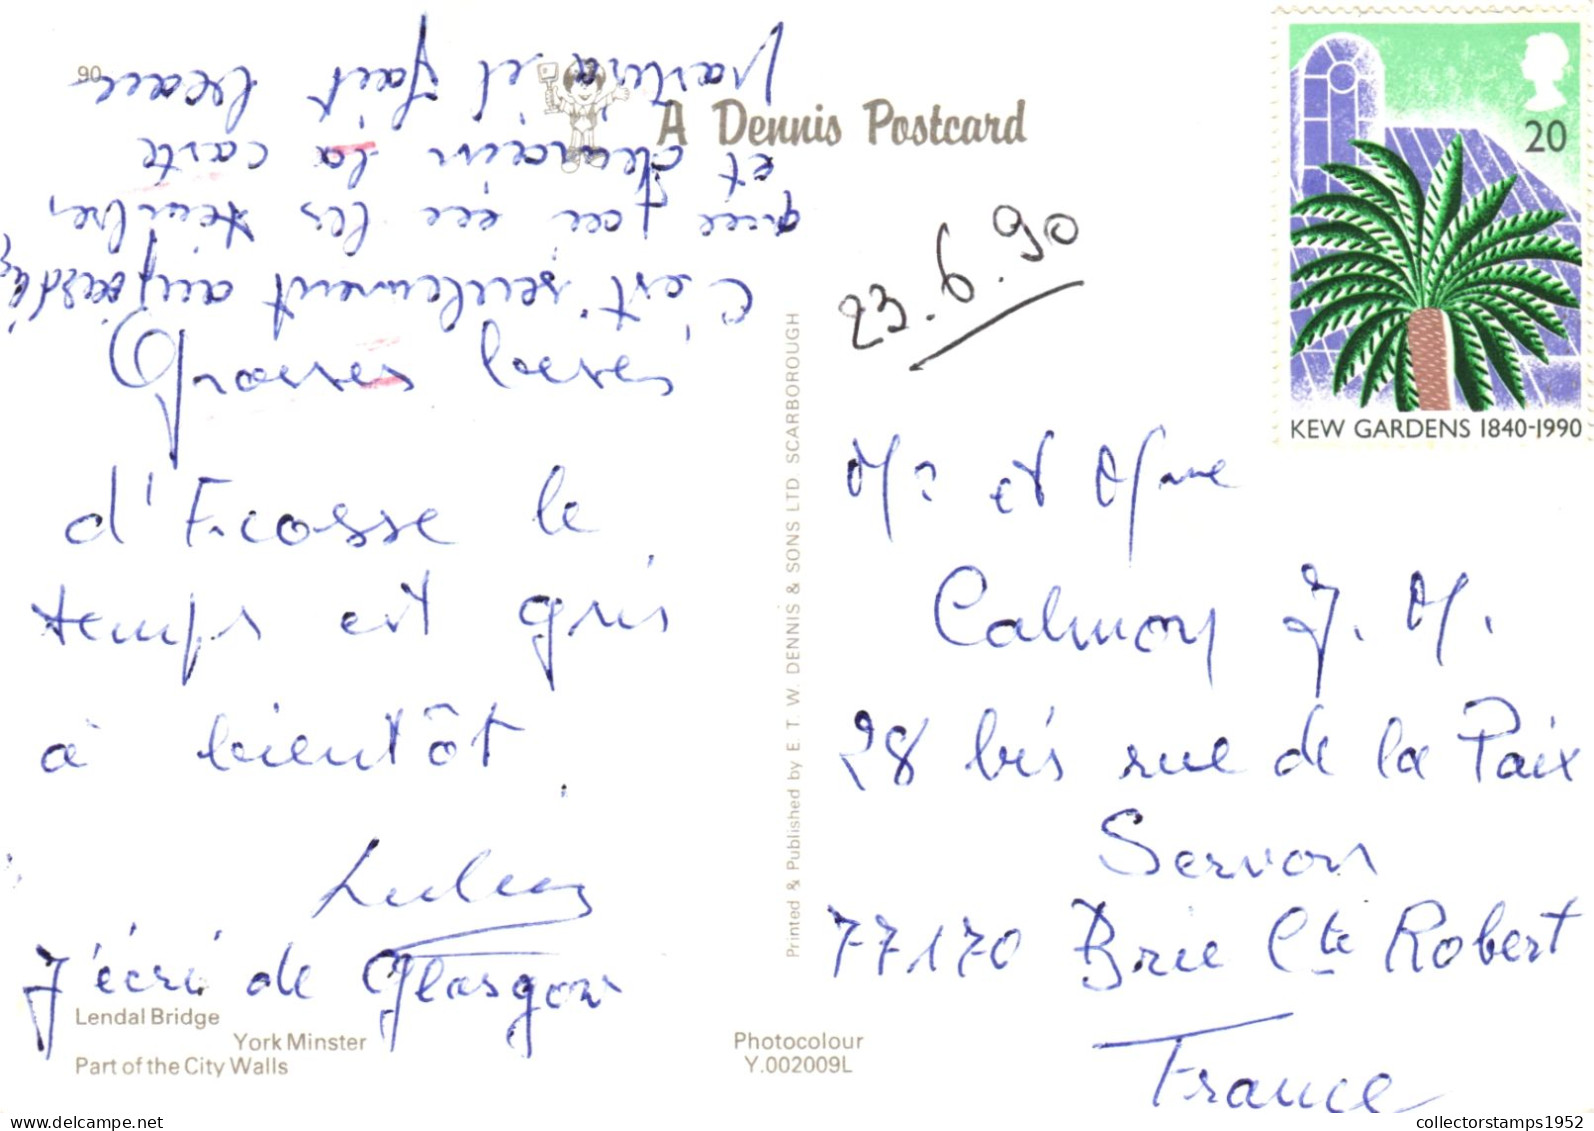 A Dennis Postcard
20
KEW GARDENS 1840-1990
23.6.90
Grosses bises
d'Ecosse le
temps est gris
à bientôt.
J'écri de Glasgow
C'est seulement aujourd'hui
que j'ai eu les timbres
et demain la carte
partira il fait beau
90
Mr et Mme
Calmon J. M.
28 bis rue de la Paix
Servon
77170 Brie Cte Robert
France
Printed & Published by E. T. W. DENNIS & SONS LTD. SCARBOROUGH
Lendal Bridge
York Minster
Part of the City Walls
Photocolour
Y.002009L
collectorstamps1952